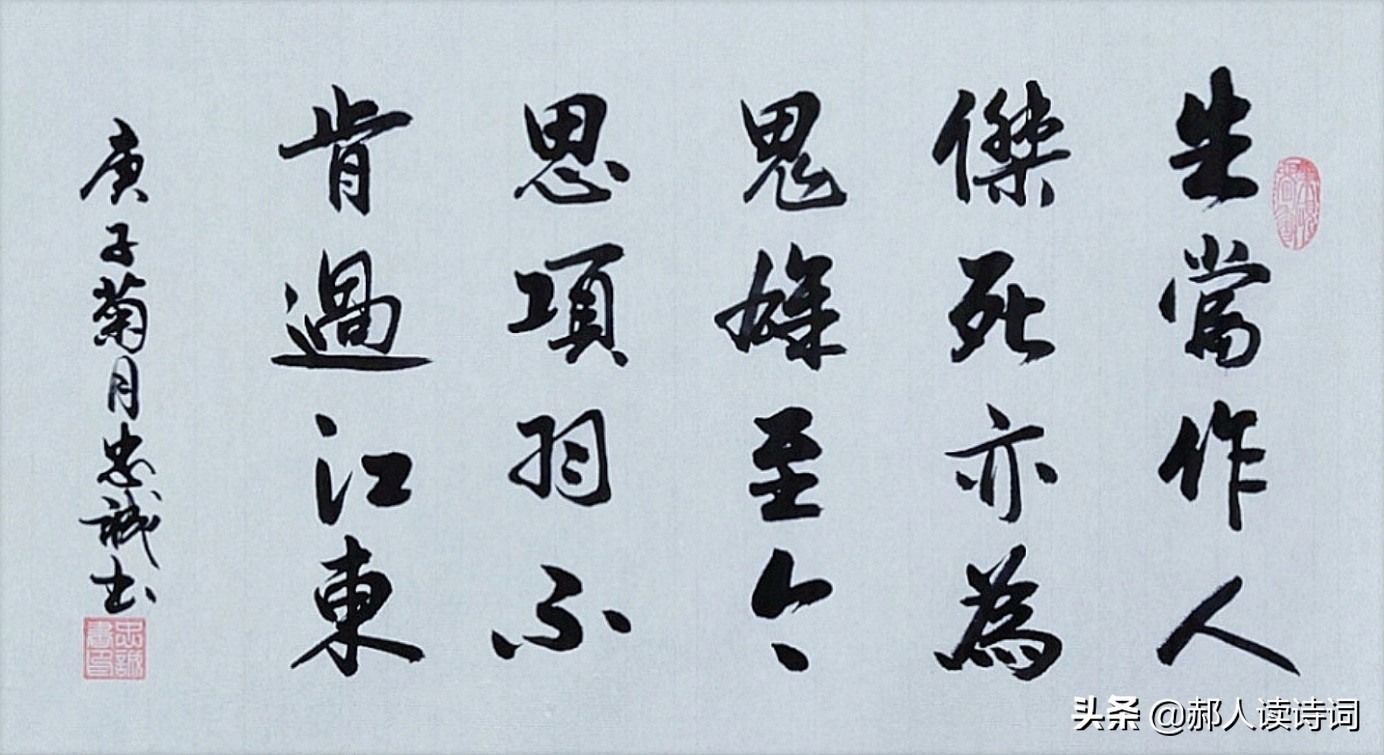 生當作人
傑死亦為
鬼雄至今
思項羽不
肯過江東
庚子菊月忠誠書
忠誠
書印
头条 @郝人读诗词